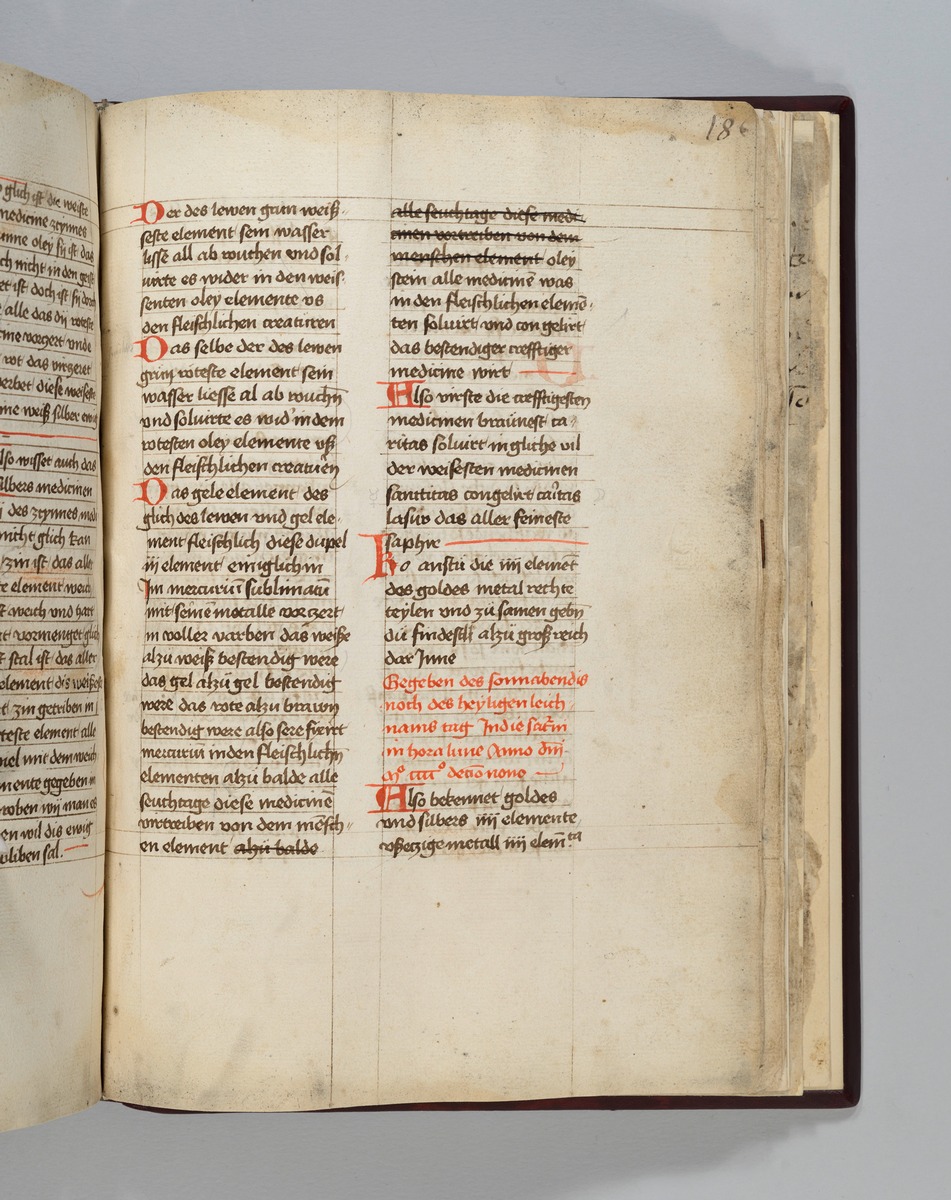 o glich ist die weiste
medicine zcynnes
unne oley sy ist das
ch nicht in den geist
et ist doch ist sy doch
alle das dy roteste
cine vorzert vnde
rot das virzeret
verbet diese weiseste
ine weiß silber
lso wisset auch das
silbers medicinen
des zcynnes medi
nicht glich kan
zin ist das alle
te element weich
st weich vnd hart
at vormenget glich
t stal ist das aller
element dis weißeste
t zin getriben in
teste element alle
mel mit dem weich
mente gegeben
woben wy man es
en wil dis ewig
bliben sal.
186
Der des lewen grün weiß-
seste element sein wasser
lisse all ab rouchen vnd sol-
uirte es wider in den weis-
senten oley elemente vs
den fleischlichen creaturen
Das selbe der des lewen
grün roteste element sein
wasser liesse al ab rouchñ
vnd soluirte es wid' in dem
rotesten oley elemente vß
den fleischlichen creaturẽ
Das gele element des
glich des lewen vnd gel ele-
ment fleischlich diese dupel
iij element einiglich in
Im mercuriũ sublimatũ
mit seinẽ metalle vorzert
in voller varben das weiße
alzu weiß bestendig were
das gel alzu gel bestendig
were das rote alzu brawn
bestendig were also sere fixirt
mercuriũ in den fleischlichñ
elementen alzu balde alle
seuchtage diese medicinẽ
virtreiben von dem mẽsch-
en element alzu balde
alle seuchtage diese medi-
cinen vortreiben von dem
menschen element oley
stein alle medicinẽ was
in den fleischlichen elemẽ-
ten soluirt vnd congelirt
das bestendiger crefftiger
medicine wirt
Also virste die crefftigesten
medicinen braunest ca-
ritas soluirt in gliche vil
der weisesten medicinen
santitas congelirt caritas
lasur das aller feineste
saphir
Ro anstu die iiij elemẽt
des goldes metal rechte
teylen vnd zu samen gebñ
du findestu alzu groß reich
dar Inne
Gegeben des sonnabendis
noch des heyligen leich-
nams tag In die sat'ni
in hora lune Anno dñi
mº ccccº decio nono
Also bekennet goldes
vnd silbers iiij elemente
metall iiij elem̃ta